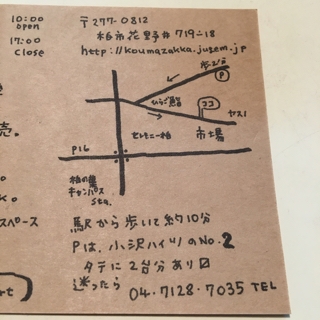 10:00
open
17:00
close
〒277-0812
柏市花野井719-18
http://koumazakka.jugem.jp
P
ひらご鮨
ココ
ヤスイ
セレモニー柏
市場
P16
柏の葉
キャンパス
sta.
売。
スペース
駅から歩いて約10分
Pは、小沢ハイツのNo.2
タテに2台分あり
迷ったら
04-7128-7035 TEL